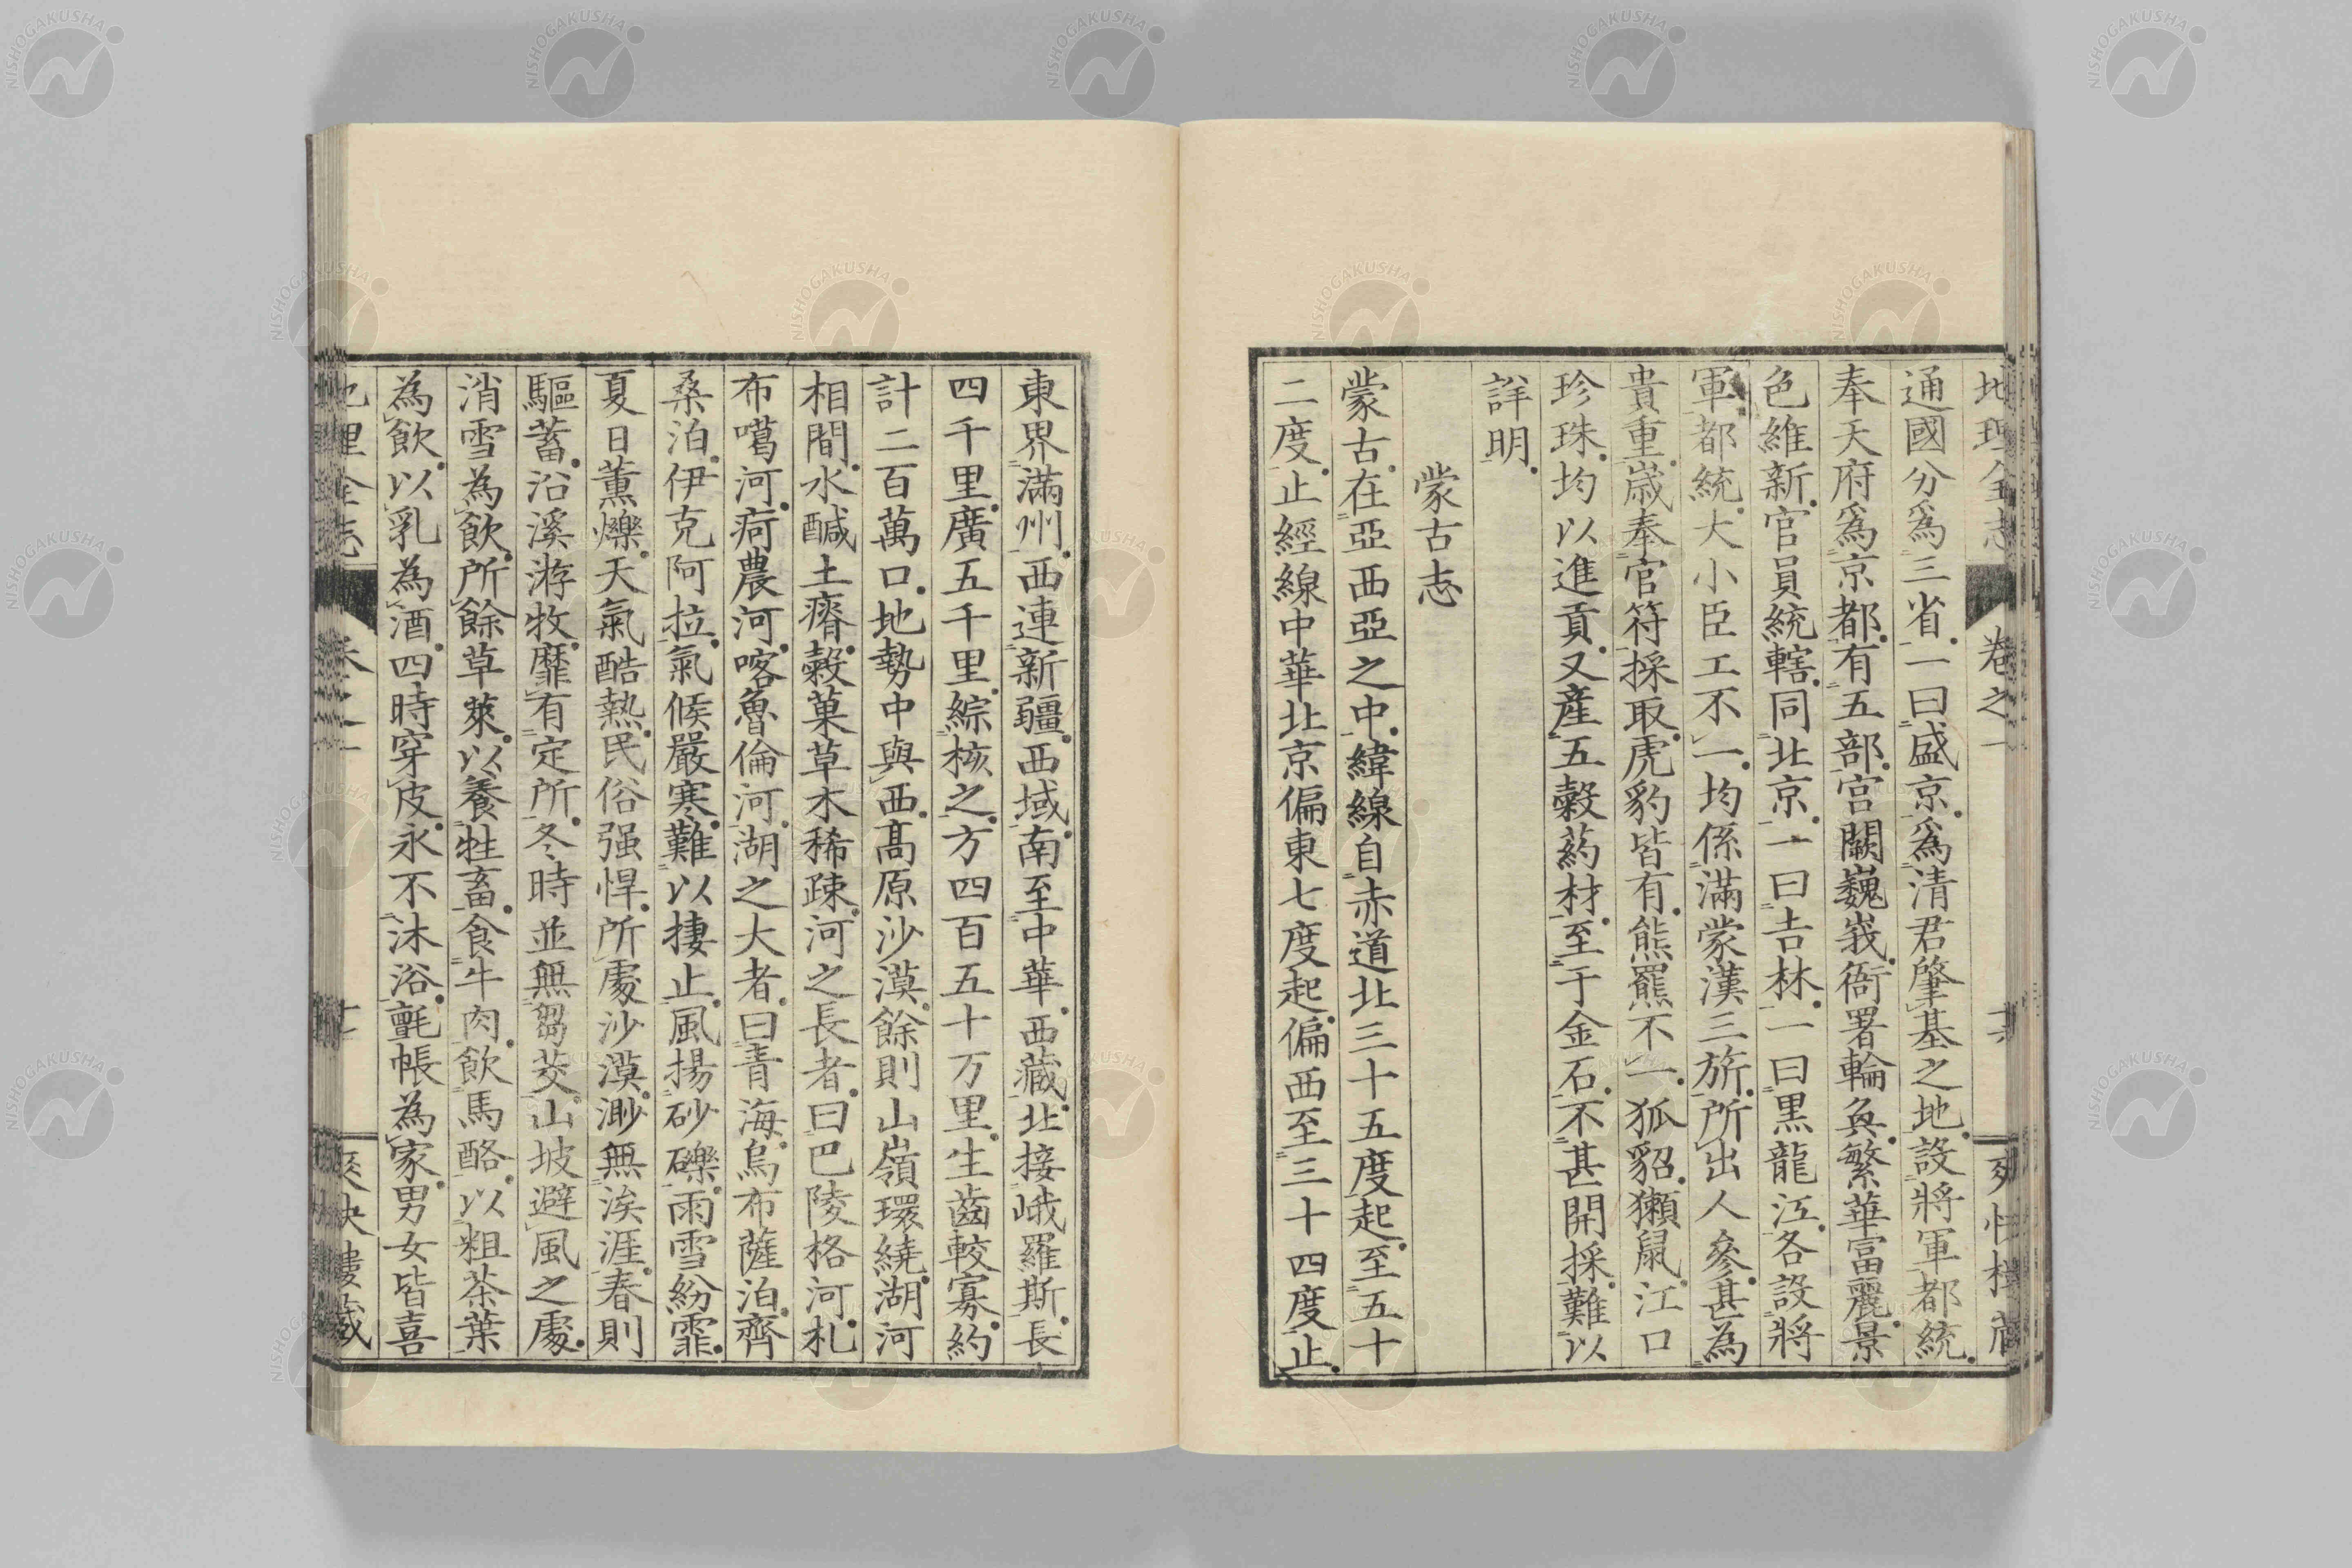 地理全志 卷之一
通國分爲三省。一曰盛京。爲清君肇基之地。設將軍都統。
奉天府爲京都。有五部。宮闕巍峩。衙署輪奐。繁華富麗。景
色維新。官員統轄。同北京。一曰吉林。一曰黑龍江。各設將
軍都統。大小臣工不一。均係滿蒙漢三旂。所出人參。甚為
貴重。嵗奉官符採取。虎豹皆有。熊羆不一。狐貂獺鼠。江口
珍珠。均以進貢。又産五穀葯材。至于金石。不甚開採。難以
詳明。
蒙古志
蒙古。在亞西亞之中。緯線自赤道北三十五度起。至五十
二度止。經線中華北京偏東七度起。偏西至三十四度止。
東界滿州。西連新疆。西域。南至中華。西藏。北接峨羅斯。長
四千里。廣五千里。綜核之。方四百五十万里。生齒較寡。約
計二百萬口。地勢中與西。高原沙漠。餘則山嶺環繞。湖河
相間。水醎土瘠。穀菓草木稀疎。河之長者。曰巴陵格河。札
布噶河。疴農河。喀魯倫河。湖之大者。曰青海。烏布薩泊。齊
桑泊。伊克阿拉。氣候嚴寒。難以捿止。風揚砂礫。雨雪紛霏。
夏日薰爍。天氣酷熱。民俗强悍。所處沙漠。渺無涘涯。春則
驅蓄。沿溪游牧。靡有定所。冬時並無芻茭。山坡避風之處。
消雪為飲。所餘草萊。以養牲畜。食牛肉。飲馬酪。以粗茶葉
為飲。以乳為酒。四時穿皮。永不沐浴。氈帳為家。男女皆喜
NISHOGAKUSHA